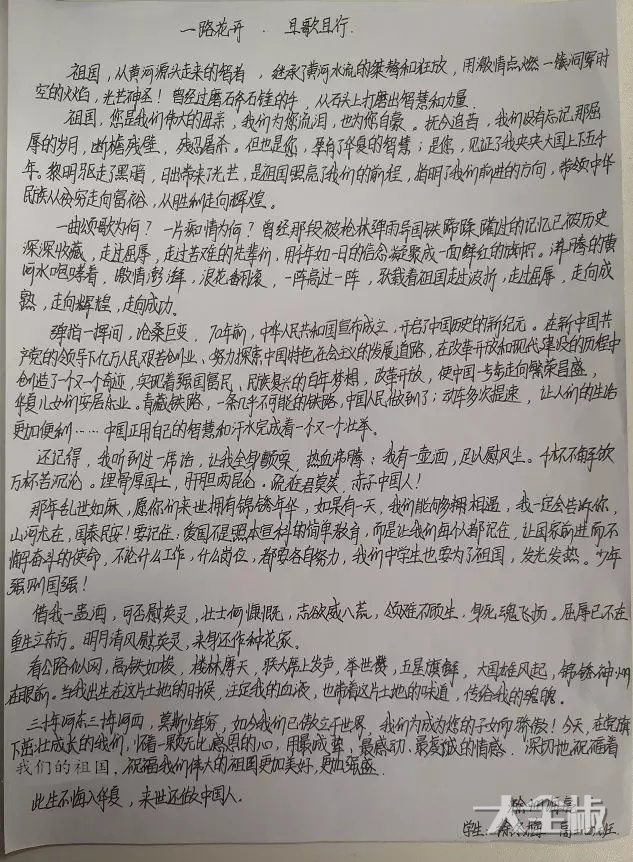 一路花开 . 且歌且行.
祖国，从黄河源头走来的智者，继承了黄河水流的桀骜和狂放，用激情点燃一簇洞穿时
空的火焰，光芒神圣！曾经过磨石条石锤的牛，从石头上打磨出智慧和力量.
祖国，您是我们伟大的母亲！我们为您流泪，也为您自豪。抚今追昔，我们没有忘记那屈
辱的岁月，断墙残壁，残忍屠杀。但也是您，孕育了华夏的智慧；是您，见证了我泱泱大国上下五千
年。黎明驱走了黑暗，日出带来了光芒，是祖国照亮了我们的前程，指明了我们前进的方向，带领中华
民族从贫穷走向富裕，从胜利走向辉煌。
一曲颂歌为何？一片痴情为何？曾经那段被枪林弹雨异国铁蹄踩躏过的记忆已被历史
深深收藏，走过屈辱，走过苦难的先辈们，用千年如一日的信念凝聚成一面鲜红的旗帜。沸腾的黄
河水咆哮着，激情澎湃，浪花翻滚，一阵高过一阵，承载着祖国走过波折，走过屈辱，走向成
熟，走向辉煌，走向成功。
弹指一挥间，沧桑巨变，70年前，中华人民共和国宣布成立，开启了中国历史的新纪元。在新中国共
产党的领导下亿万人民艰苦创业、努力探索中国特色社会主义的发展道路，在改革开放和现代建设的历程中
创造了一个又一个奇迹，实现着强国富民、民族复兴的百年梦想，改革开放，使中国一步步走向繁荣昌盛，
华夏儿女们安居乐业。青藏铁路，一条几乎不可能的铁路，中国人民做到了；动车多次提速，让人们的生活
更加便利……中国正用自己的智慧和汗水完成着一个又一个壮举。
还记得，我听到过一席话，让我全身颤栗，热血沸腾：我有一壶酒，足以慰风尘。千杯不解饮
万杯苦沉沦。埋骨厚国土，肝胆两昆仑。宛在君莞笑，赤子中国人！
那年乱世如麻，愿你们来世拥有锦绣年华，如果有一天，我们能够相遇，我一定会告诉你，
山河尤在，国泰民安！要记住：爱国不是照本宣科的简单教育，而是让我们每个人都记住，让国家前进而不
懈奋斗的使命，不论什么工作，什么岗位，都要各自努力，我们中学生也要为了祖国，发光发热。少年
强则国强！
借我一盏酒，可否慰英灵，壮士何慷慨，志欲威八荒，领难不顾生，身死魂飞扬。屈辱已不在
重生立东方。明月清风慰英灵，来身还作种花家。
看公路似网，高铁如梭，楼林摩天，联大席上发声，举世赞，五星旗鲜，大国雄风起，锦绣神州
在眼前。当我出生在这片土地的时候，注定我的血液，也带着这片土地的味道，传给我的魂魄。
三十年河东三十年河西，莫欺少年穷，如今我们已傲立于世界，我们为成为您的子女而骄傲！今天，在党旗
下茁壮成长的我们，怀着一颗无比感恩的心，用最诚挚、最感动、最真诚的情感. 深切地祝福着
我们的祖国，祝福我们伟大的祖国更加美好，更加强盛.
此生不悔入华夏，来世还做中国人。
学生：
大全椒